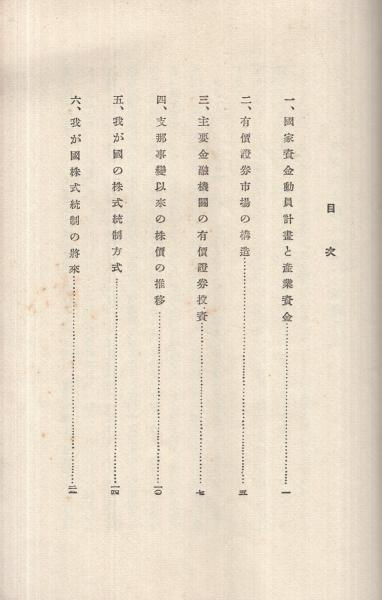 目次
一、國家資金動員計畫と產業資金……………………一
二、有價證券市場の構造……………………五
三、主要金融機關の有價證券投資……………………七
四、支那事變以來の株價の推移……………………一〇
五、我が國の株式統制方式……………………一四
六、我が國株式統制の將來……………………二一